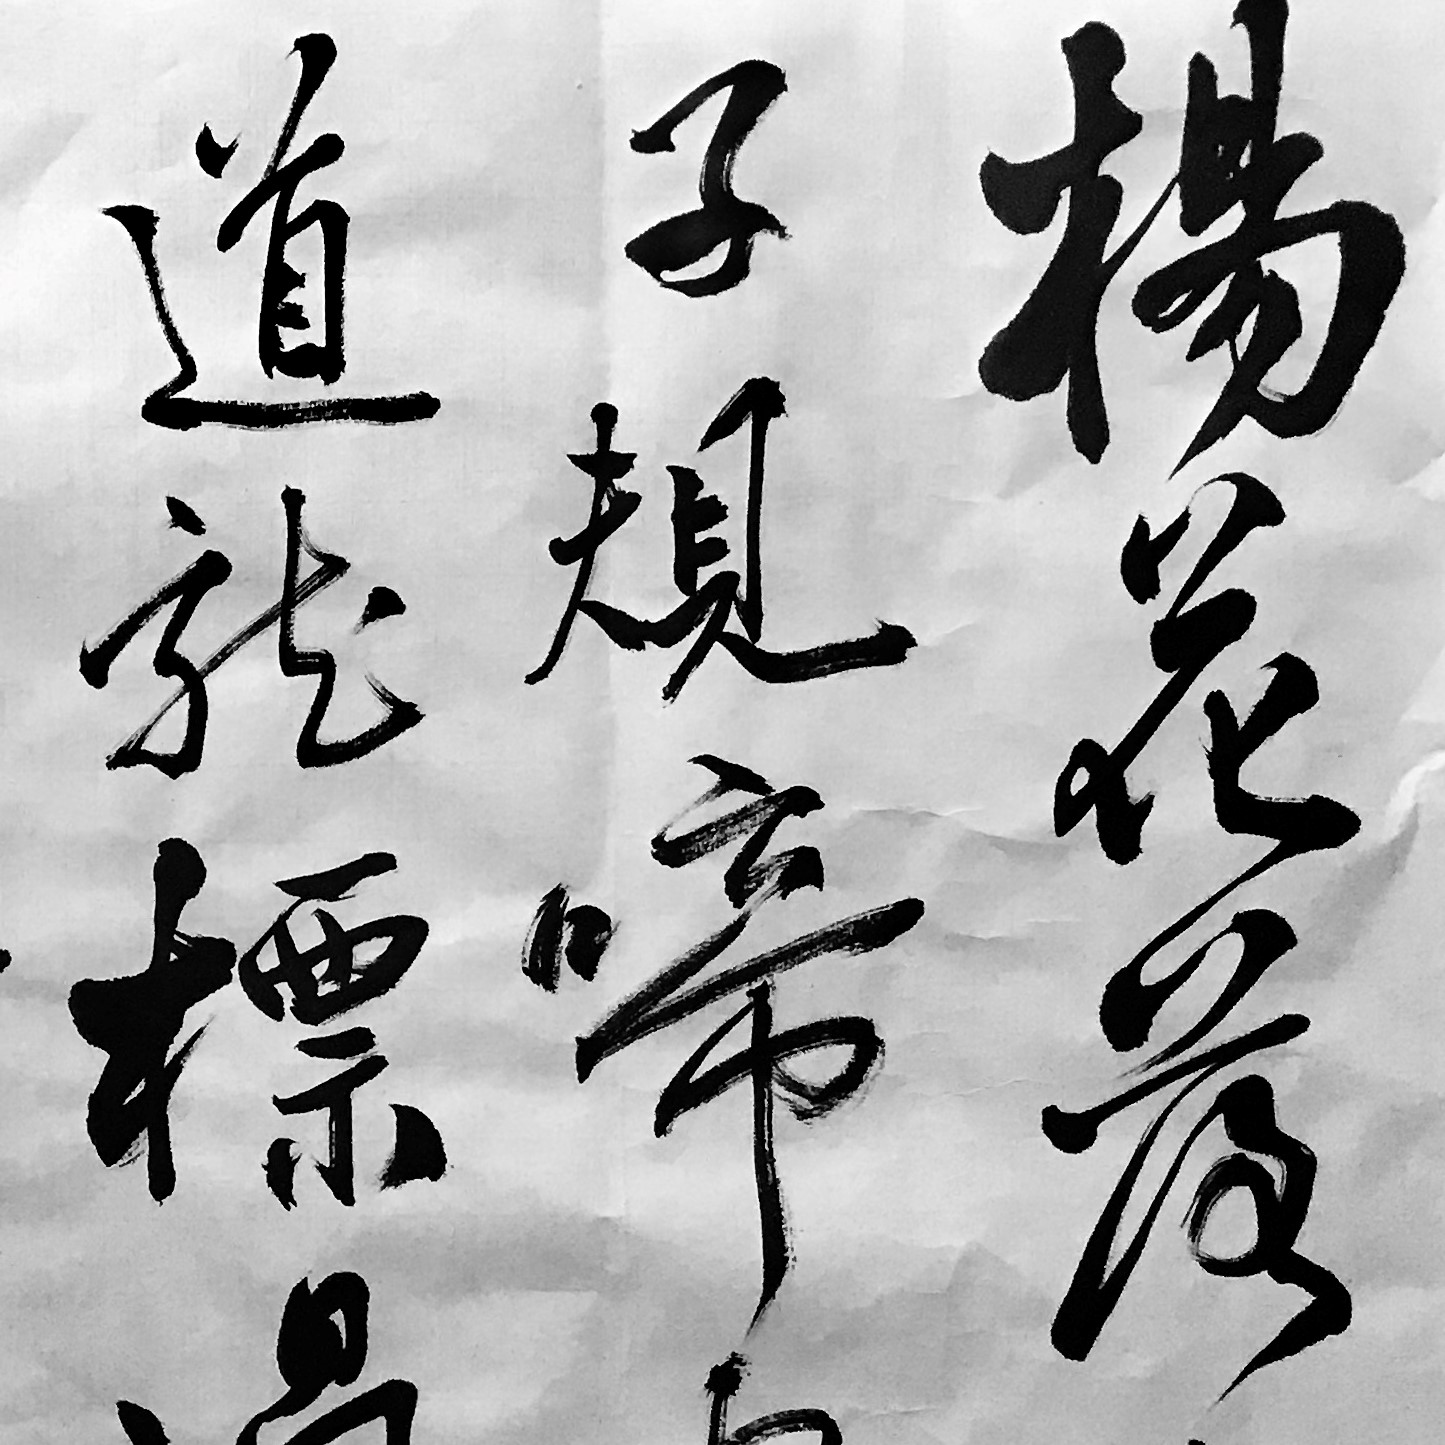 楊花落
子規啼
道龍標過